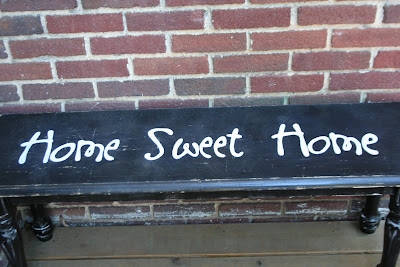 Home Sweet Home